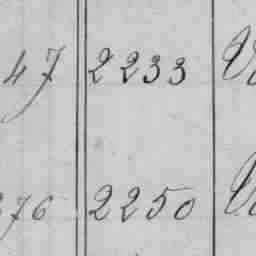 47 2233
76 2250